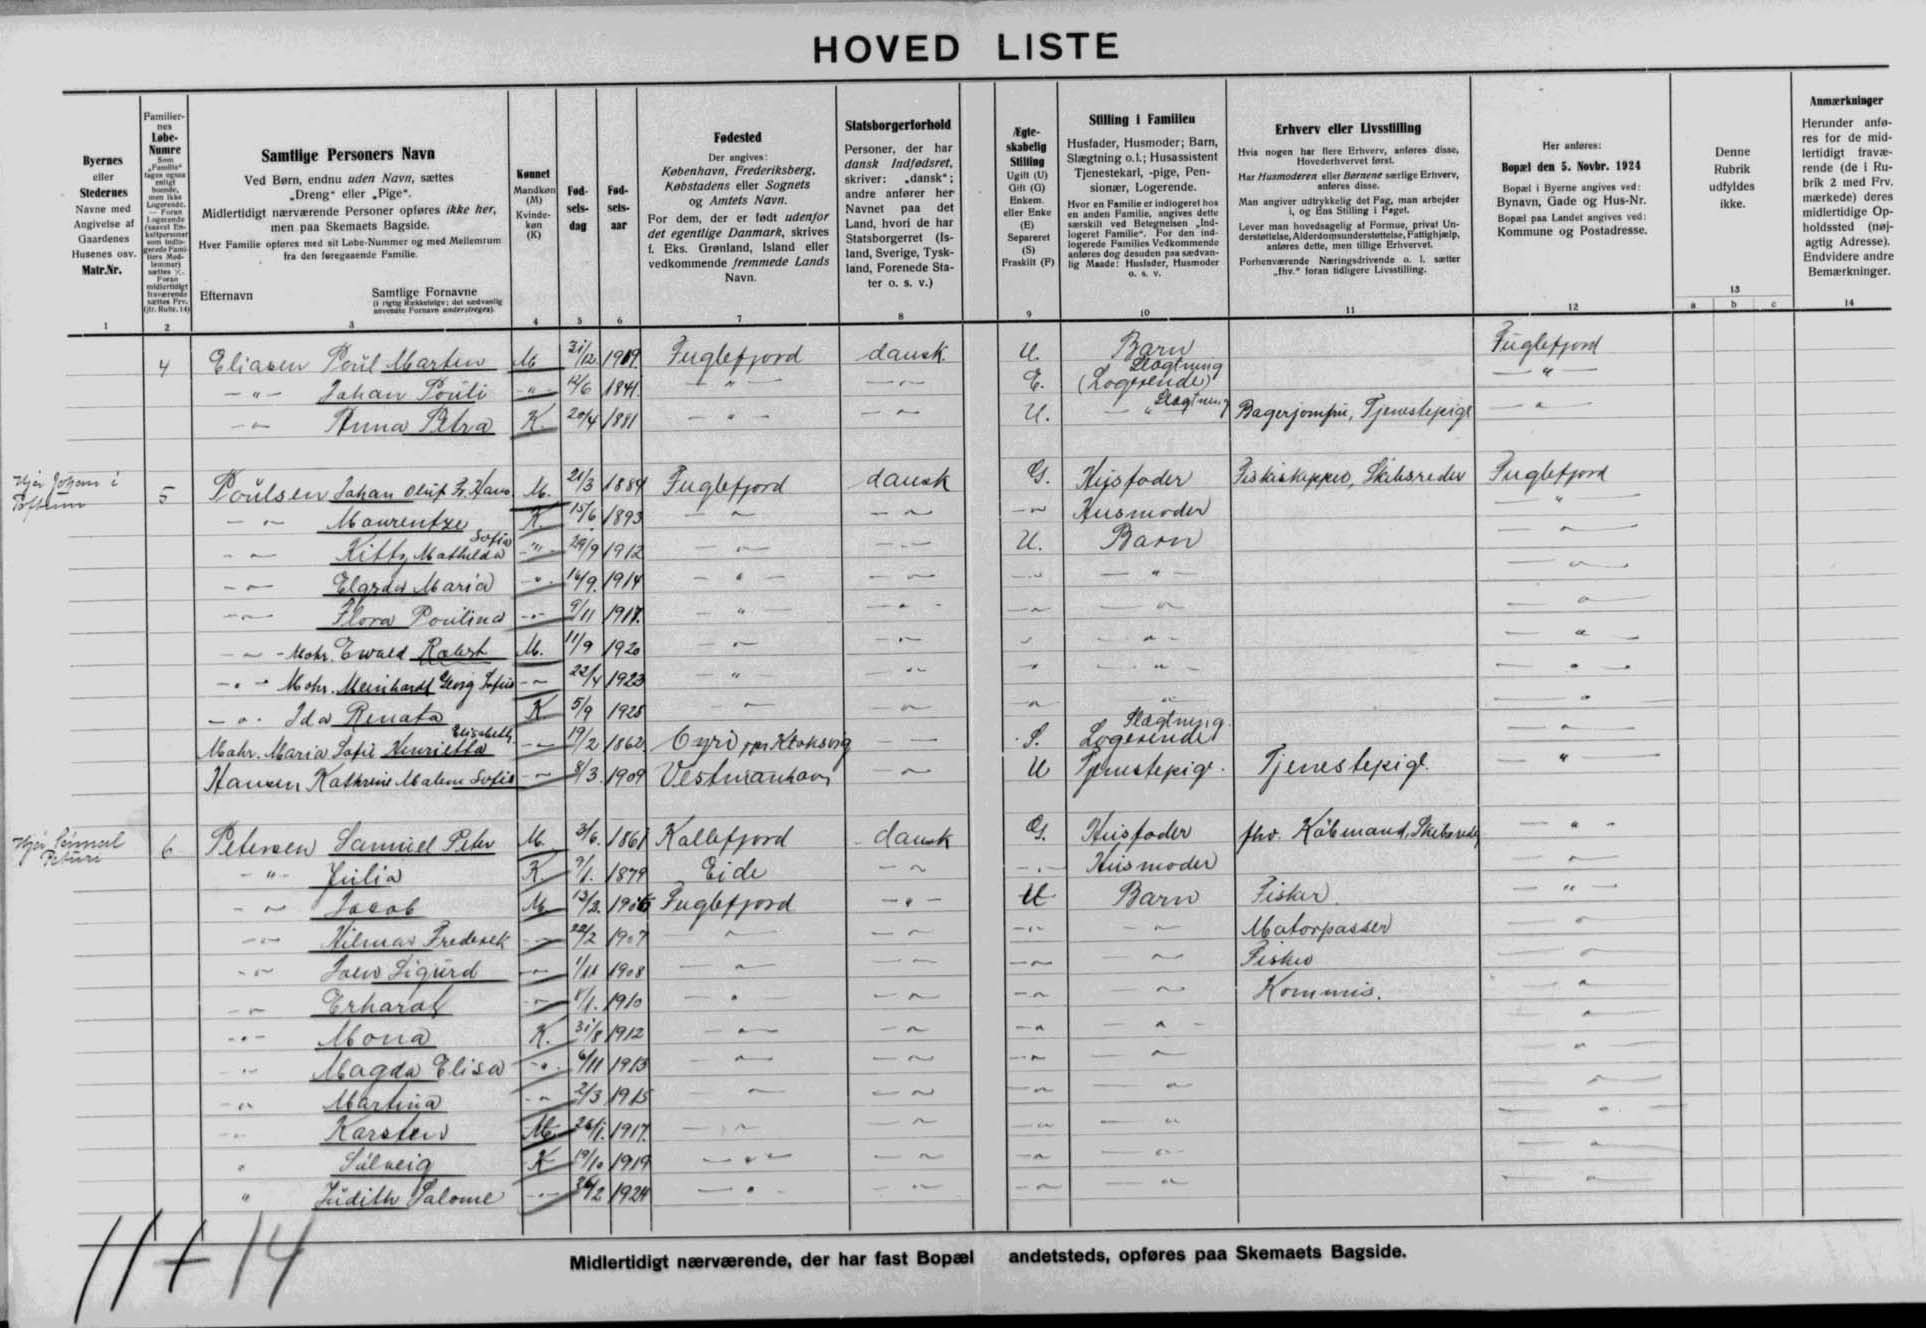 HOVED LISTE
Byernes
eller
Stedernes
Navne med
Angivelse af
Gaardenes
Husenes osv.
Matr.Nr.
1
Familier-
nes
Løbe-
Numre
Som
„Familie“
tages ogsaa
enligt
boende,
men ikke
Logerende.
— Foran
Logerende
2
Samtlige Personers Navn
Ved Børn, endnu uden Navn, sættes
„Dreng“ eller „Pige“.
Midlertidigt nærværende Personer opføres ikke her,
men paa Skemaets Bagside.
Hver Familie opføres med sit Løbe-Nummer og med Mellemrum
fra den foregaaende Familie.
Efternavn
Samtlige Fornavne
(i rigtig Rækkefølge; det sædvanlig
anvendte Fornavn understreges).
3
Kønnet
Mandkøn
(M)
Kvinde-
køn
(K)
4
Fød-
sels-
dag
5
Fød-
sels-
aar
6
Fødested
Der angives:
København, Frederiksberg,
Købstadens eller Sognets
og Amtets Navn.
For dem, der er født udenfor
det egentlige Danmark, skrives
f. Eks. Grønland, Island eller
vedkommende fremmede Lands
Navn.
7
Statsborgerforhold
Personer, der har
dansk Indfødsret,
skriver: „dansk“;
andre anfører her
Navnet paa det
Land, hvori de har
Statsborgerret (Is-
land, Sverige, Tysk-
land, Forenede Sta-
ter o. s. v.)
8
Ægte-
skabelig
Stilling
Ugift (U)
Gift (G)
Enkem.
eller Enke
(E)
Separeret
(S)
Fraskilt (F)
9
Stilling i Familien
Husfader, Husmoder; Barn,
Slægtning o.l.; Husassistent
Tjenestekarl, -pige, Pen-
sionær, Logerende.
Hvor en Familie er indlogeret hos
en anden Familie, angives dette
særskilt ved Betegnelsen „Ind-
logeret Familie“. For den ind-
logerede Families Vedkommende
anføres dog desuden paa sædvan-
lig Maade: Husfader, Husmoder
o. s. v.
10
Erhverv eller Livsstilling
Hvis nogen har flere Erhverv, anføres disse,
Hovederhvervet først.
Har Husmoderen eller Børnene særlige Erhverv,
anføres disse.
Man angiver udtrykkelig det Fag, man arbejder
i, og Ens Stilling i Faget.
Lever man hovedsagelig af Formue, privat Un-
derstøttelse, Alderdomsunderstøttelse, Fattighjælp,
anføres dette, men tillige Erhvervet.
Forhenværende Næringsdrivende o. l. sætter
„fhv.“ foran tidligere Livsstilling.
11
Her anføres:
Bopæl den 5. Novbr. 1924
Bopæl i Byerne angives ved:
Bynavn, Gade og Hus-Nr.
Bopæl paa Landet angives ved:
Kommune og Postadresse.
12
Denne
Rubrik
udfyldes
ikke.
13
a b c
Anmærkninger
Herunder anfø-
res for de mid-
lertidigt fravæ-
rende (de i Ru-
brik 2 med Frv.
mærkede) deres
midlertidige Op-
holdssted (nøj-
agtig Adresse).
Endvidere andre
Bemærkninger.
14
4 Eliasen Poul Marten M 31/12 1919 Fuglefjord dansk U. Barn Fuglefjord
Slægtning
— " — Johan Pouli — " — 12/6 1841 — " — — " — E. (Logerende) — " —
— " — Anna Petra K. 20/4 1881 — " — — " — U. — " Slægtning Bagerjomfru, Tjenestepige — " —
Hjá Jóhan i
Toftum
5 Poulsen Johan Oluf Fr. Hans M. 21/3 1884 Fuglefjord dansk G. Husfader Fiskeskipper, Skibsreder Fuglefjord
— " — Maurentze K. 15/6 1893 — " — — " — — " Husmoder "
— " — Kitty Mathilda Sofia — " — 29/9 1912 — " — — " — U. Barn — " —
— " — Elgrda Maria — " — 16/9 1914 — " — — " — — " — — " — — " —
— " — Flora Poulina — " — 9/11 1917. — " — — " — — " — — " — — " —
— " — Mohr. Ewald Robert M. 11/9 1920 — " — — " — " — " — — " —
— " — Mohr. Meinhardt Georg Sofus — " — 22/4 1923 — " — — " — " — " — — " —
— " — Ida Renata K 5/9 1925 — " — — " — — " — " — " —
Elisabeth Slægtning.
Mohr. Maria Sofie Henrietta — " — 19/2 1862 — S. Logerende
Hansen Kathrine Malene Sofia — " — 8/3 1909 Vestmanhavn — " — U Tjenestepige. Tjenestepige. — " —
Hjá Sámuel
Peturi
6 Petersen Samuel Peter M. 3/6. 1861 Kollefjord dansk G. Husfader fhv. Købmand, Skibsreder — " —
— " — Julia K 9/1. 1879 Eide — " — — " — Husmoder — " —
— " — Jacob M 13/3. Fuglefjord — " — U Barn Fisker. — " —
— " — Hilmar Frederek — " — 22/2 1907 — " — — " — — " — — " — Motorpasser — " —
— " — Joen Sigurd — " — 1/11 1908 — " — — " — — " — — " — Fisker — " —
— " — Erhardt — " — 1910 — " — — " — — " — — " — Kommis. — " —
— " — Mona K. 31/8 1912 — " — — " — — " — — " — — " —
— " — Magda Elisa — " — 6/11 1913 — " — — " — — " — — " — — " —
— " — Martina — " — 2/3 1915 — " — — " — — " — — " — — " —
— " — Karsten M. 26/1. 1917. — " — — " — — " — — " — — " —
" Sólveig K 19/10 1919 — " — — " — — " — — " — — " —
" Judith Salome — " — 1924 — " — — " — — " — — " — — " —
11 + 14
Midlertidigt nærværende, der har fast Bopæl andetsteds, opføres paa Skemaets Bagside.